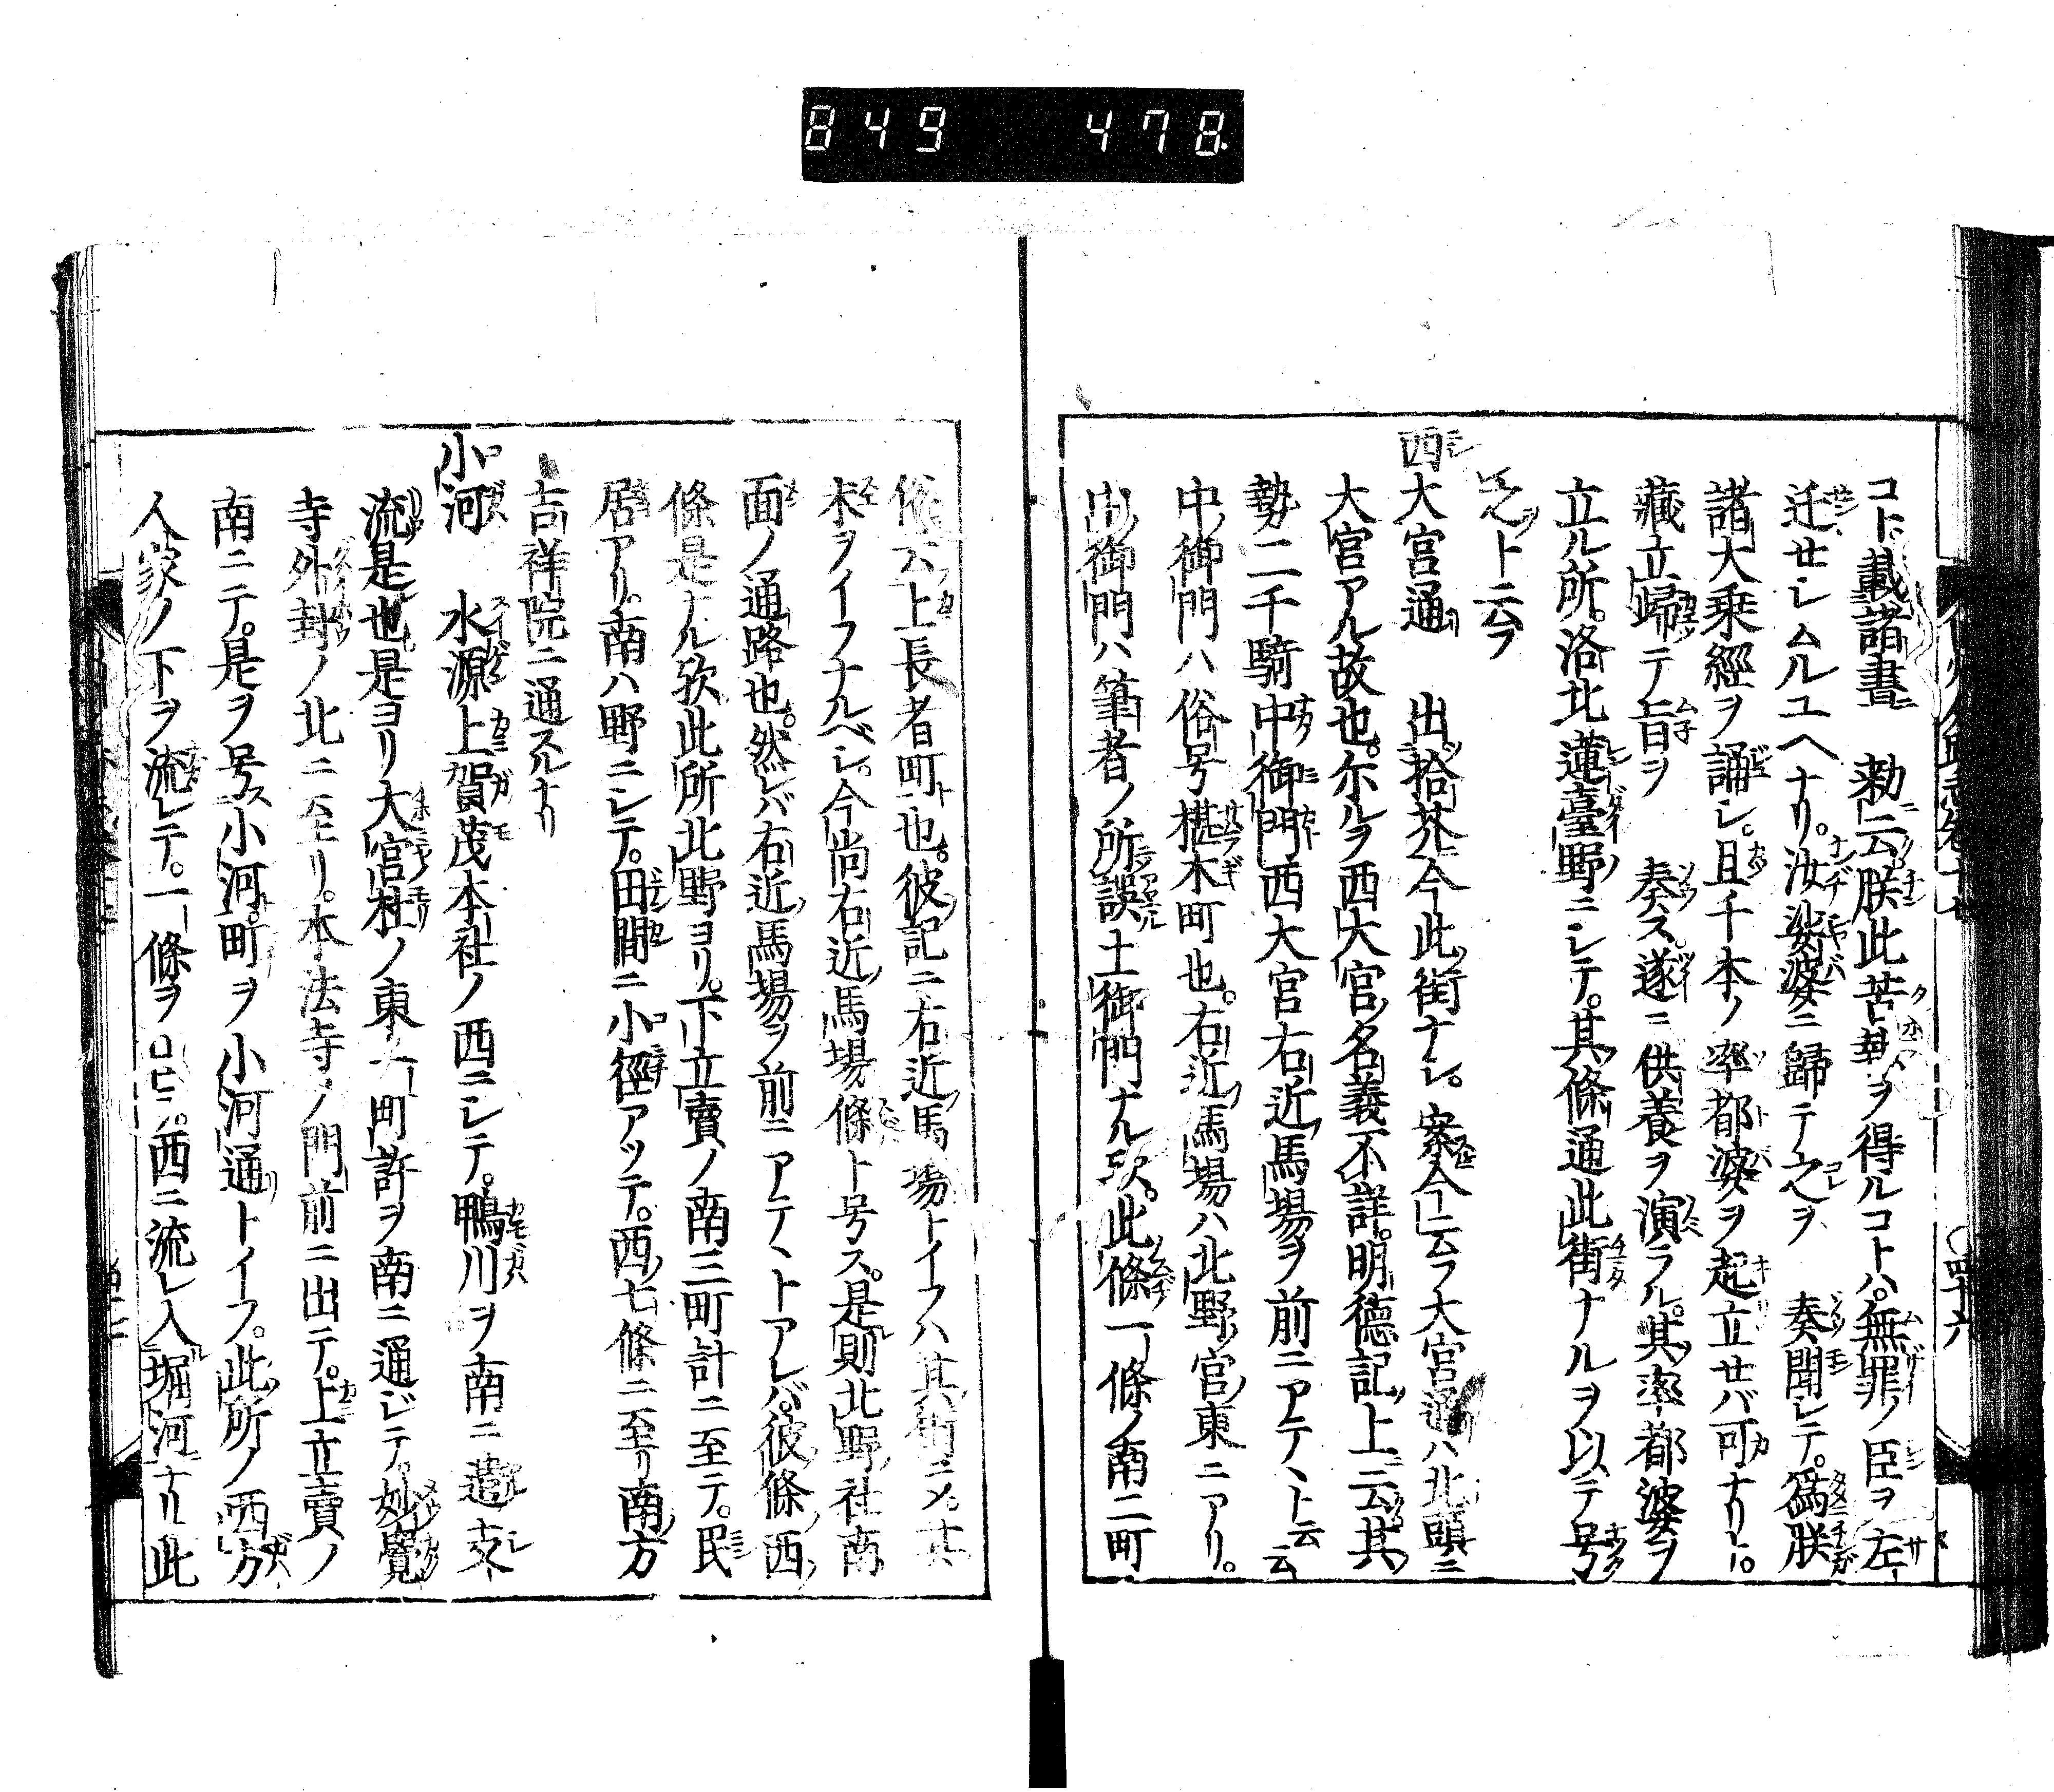 849 478
コト載諸書 勅云朕此苦報ヲ得ルコトハ。無罪ノ臣ヲ左
迁せシムルユヘナリ。汝娑婆ニ歸テ之ヲ 奏聞シテ。爲朕
諸大乗經ヲ誦シ。且千本ノ率都婆ヲ起立せバ可ナリト。
藏立歸テ旨ヲ 奏ス。遂ニ供養ヲ演ラル。其率都婆ヲ
立ル所。洛北蓮臺野ニシテ。其條通此街ナルヲ以テ号
之ト云フ
西大宮通 出拾芥今此街ナシ。案今云フ大宮通ハ北頭ニ
大宮アル故也。尓ルヲ西大宮名義不詳。明德記上云其
勢二千騎中御門西大宮右近馬場ヲ前ニアテヽト云云
中御門ハ俗号椹木町也。右近馬場ハ北野宮東ニアリ。
中御門ハ筆者ノ所誤土御門ナル欤。此條一條ノ南二町
俗云上長者町也。彼記ニ右近馬場トイフハ其街ニメ。其
末ヲイフナルベシ。今尚右近馬場條ト号ス。是則北野社南
面ノ通路也。然レバ右近馬場ヲ前ニアテヽトアレバ。彼條西
條是ナル欤此所北野ヨリ。下立賣ノ南三町計ニ至テ。民
居アリ。南ハ野ニシテ。田間ニ小徑アッテ。西七條ニ至リ南方
吉祥院ニ通スルナリ
小河 水源上賀茂本社ノ西ニシテ。鴨川ヲ南ニ遣支
流是也是ヨリ大宮杜ノ東一町許ヲ南ニ通ジテ。妙覺
寺外封ノ北ニ至リ。本法寺ノ門前ニ出テ。上立賣ノ
南ニテ。是ヲ号ス小河。町ヲ小河通トイフ。此所ノ西方
人家ノ下ヲ流レテ。一條ヲ 西ニ流レ入堀河ナリ此